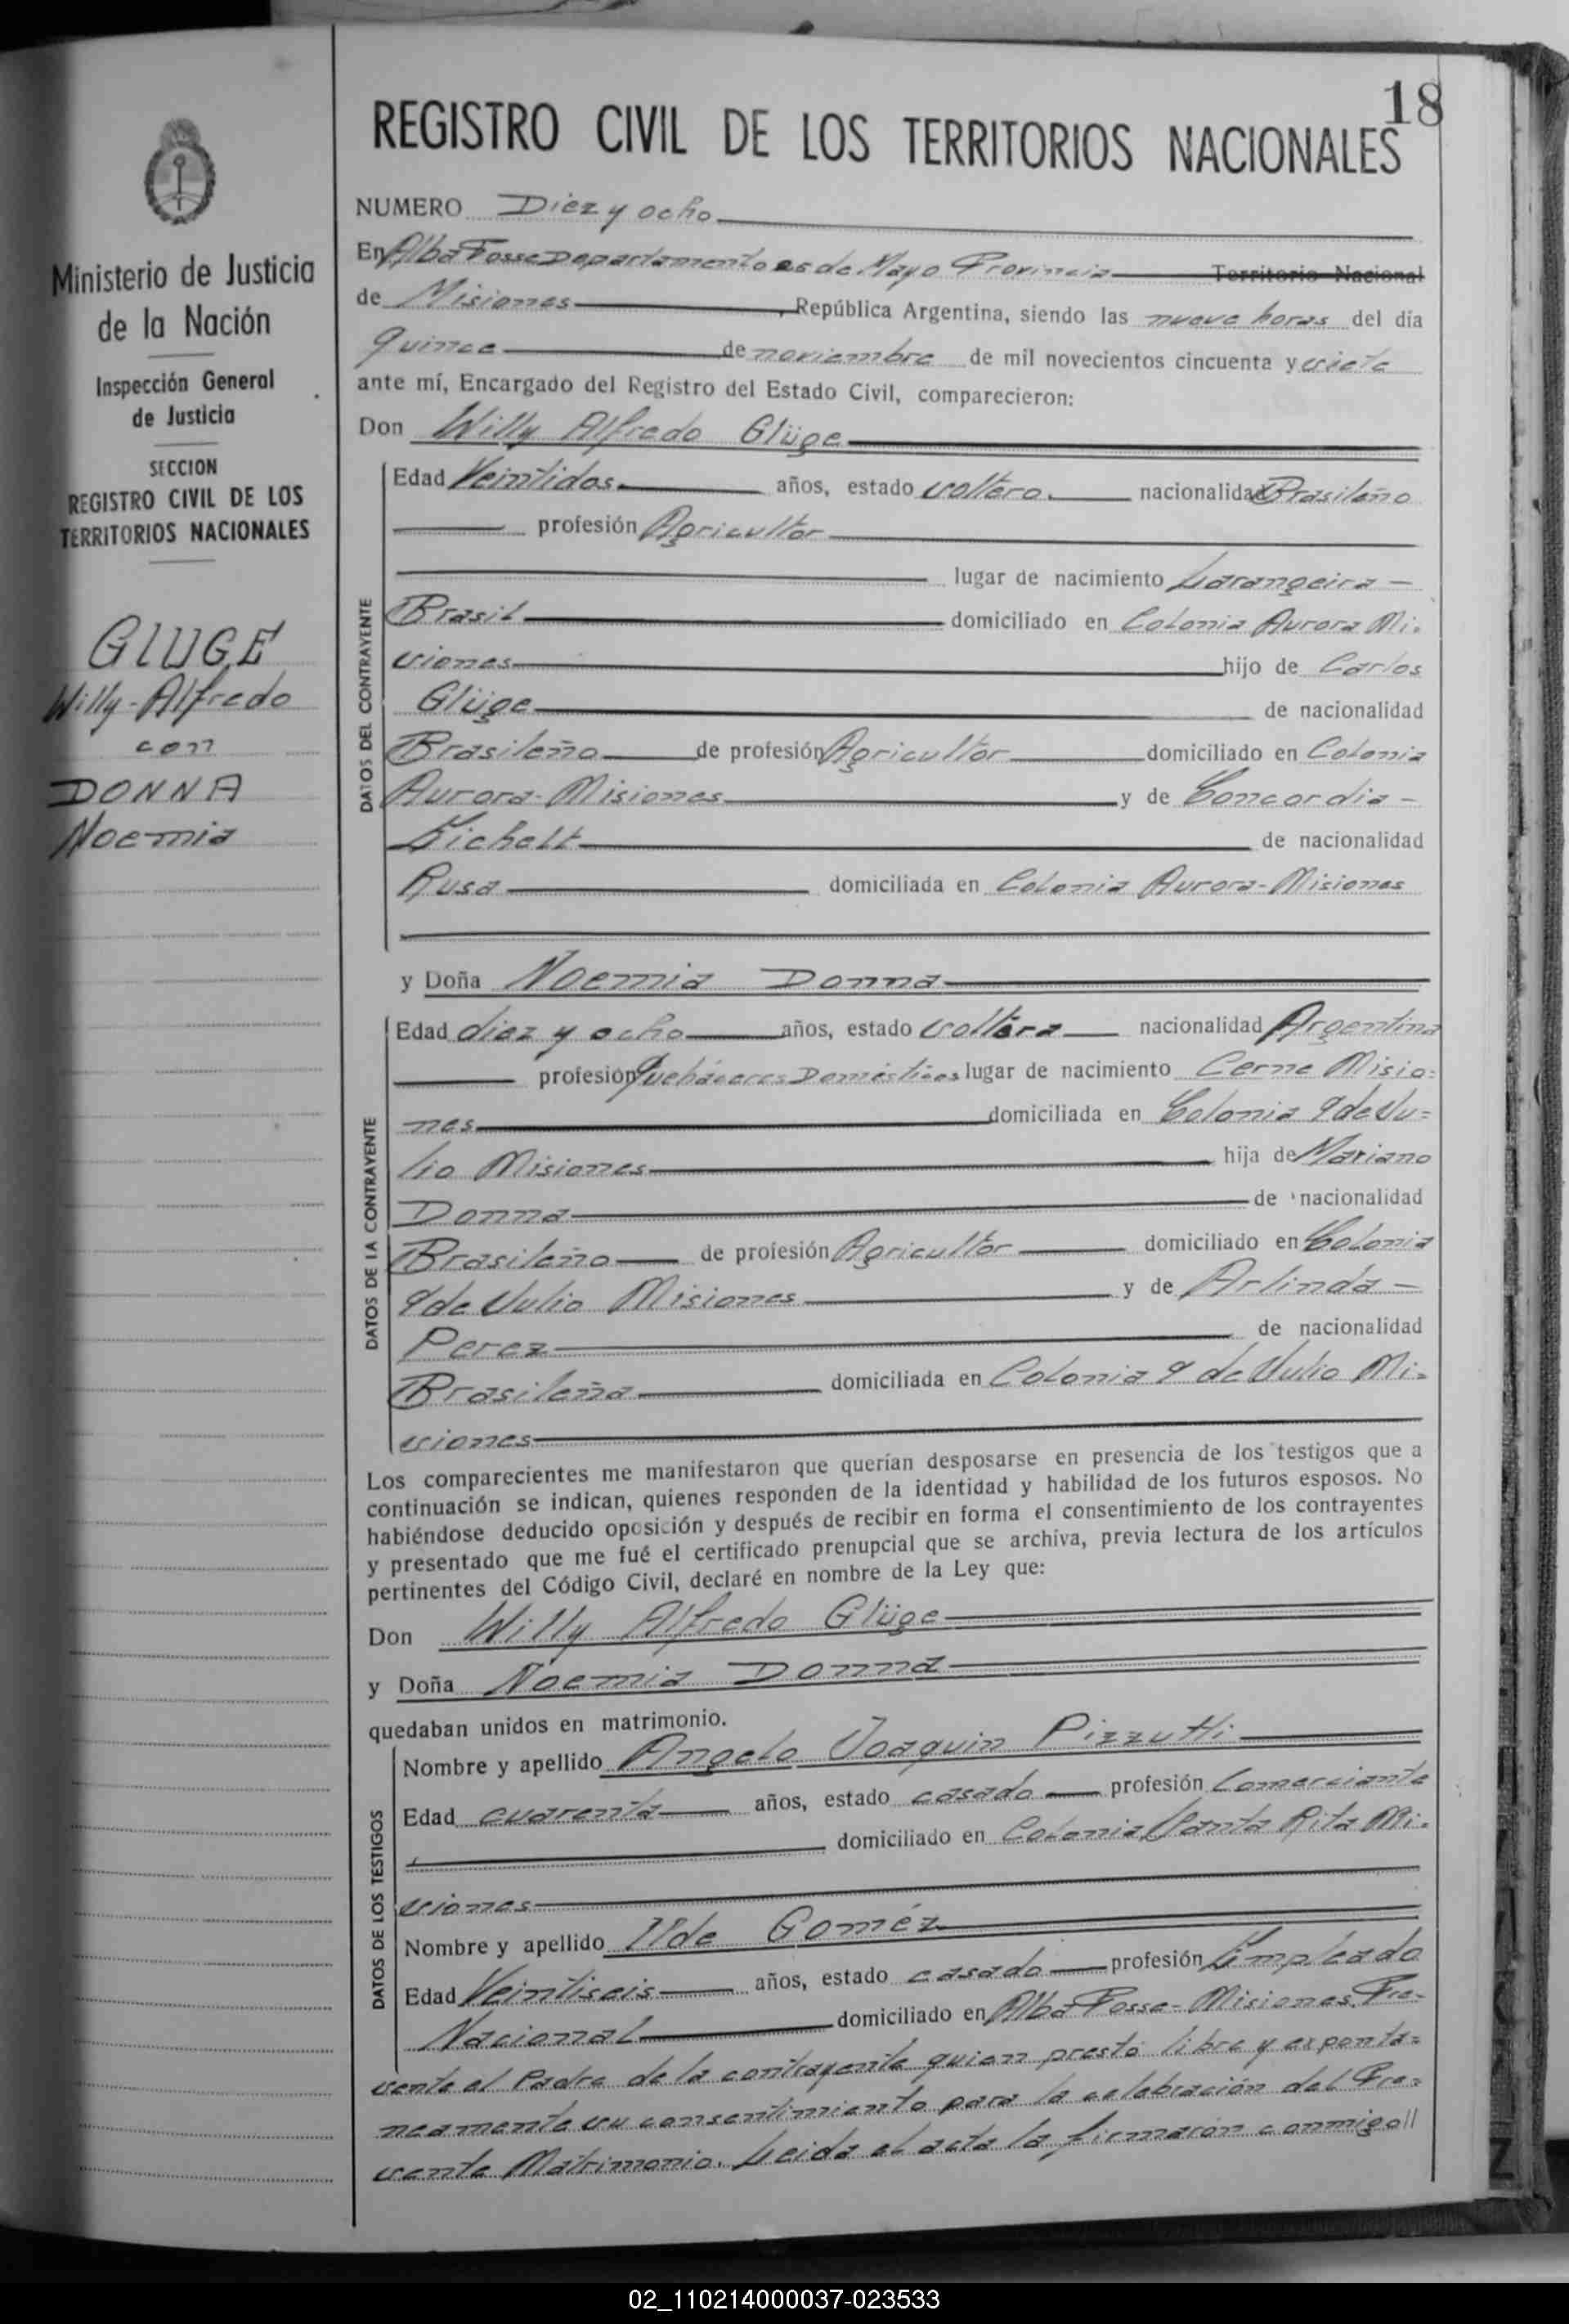 18
REGISTRO CIVIL DE LOS TERRITORIOS NACIONALES
Ministerio de Justicia
de la Nación
Inspección General
de Justicia
SECCION
REGISTRO CIVIL DE LOS
TERRITORIOS NACIONALES
GLUGE
Willy-Alfredo
con
DONNA
Noemia
NUMERO Diez y ocho
En Alba Posse Departamento 25 de Mayo Provincia Territorio Nacional
de Misiones, República Argentina, siendo las nueve horas del día
quince de noviembre de mil novecientos cincuenta y siete
ante mí, Encargado del Registro del Estado Civil, comparecieron:
Don Willy Alfredo Glüge
DATOS DEL CONTRAYENTE
Edad Veintidos años, estado soltero. nacionalidad Brasileño
profesión Agricultor
lugar de nacimiento Larangeira -
Brasil domiciliado en Colonia Aurora Mi-
siones hijo de Carlos
Glüge de nacionalidad
Brasileño de profesión Agricultor domiciliado en Colonia
Aurora-Misiones y de Concordia -
de nacionalidad
Rusa domiciliada en Colonia Aurora-Misiones
y Doña Noemia Donna
DATOS DE LA CONTRAYENTE
Edad diez y ocho años, estado soltera nacionalidad Argentina
profesión Quehaceres Domésticos lugar de nacimiento Misio=
nes domiciliada en Colonia 9 de Ju=
lio Misiones hija de Mariano
Donna de nacionalidad
Brasileño de profesión Agricultor domiciliado en Colonia
9 de Julio Misiones y de Arlinda -
Perez de nacionalidad
Brasileña domiciliada en Colonia 9 de Julio Mi-
siones
Los comparecientes me manifestaron que querían desposarse en presencia de los testigos que a
continuación se indican, quienes responden de la identidad y habilidad de los futuros esposos. No
habiéndose deducido oposición y después de recibir en forma el consentimiento de los contrayentes
y presentado que me fué el certificado prenupcial que se archiva, previa lectura de los artículos
pertinentes del Código Civil, declaré en nombre de la Ley que:
Don Willy Alfredo Glüge
y Doña Noemia Donna
quedaban unidos en matrimonio.
DATOS DE LOS TESTIGOS
Nombre y apellido Angelo Joaquin Pizzutti
Edad cuarenta años, estado casado profesión Comerciante
domiciliado en Colonia Santa Rita Mi-
siones
Nombre y apellido Ilde Goméz
Edad Veintiseis años, estado casado profesión Empleado
Nacional domiciliado en Alba Posse-Misiones. Pre-
sente el Padre de la contrayente quien prestó libre y esponta=
neamente su consentimiento para la celebración del Pre=
sente Matrimonio. Leida el acta la firmaron conmigo//
02_110214000037-023533